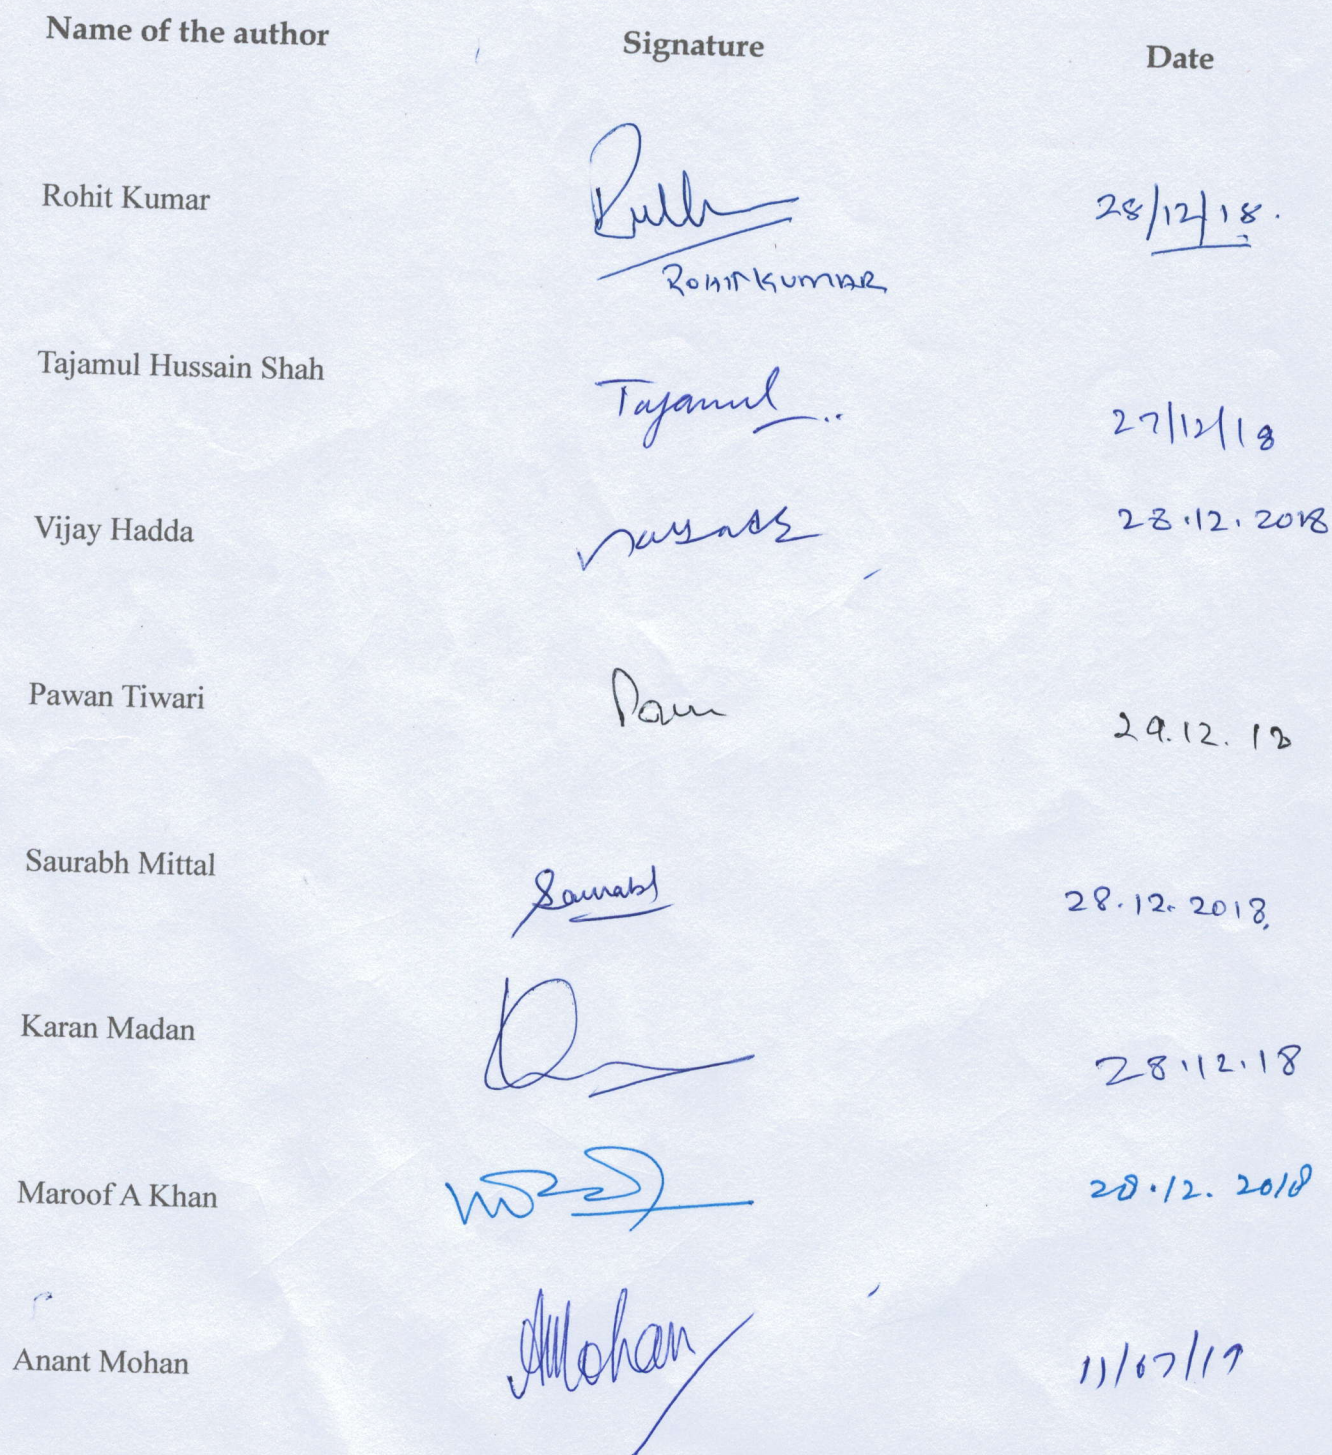 Name of the author Signature Date
Rohit Kumar 28/12/18.
ROHIT KUMAR
Tajamul Hussain Shah Tajamul 27/12/18
Vijay Hadda 28.12.2018
Pawan Tiwari 29.12.18
Saurabh Mittal Saurabh 28.12.2018
Karan Madan 28.12.18
Maroof A Khan 28.12.2018
Anant Mohan AMohan